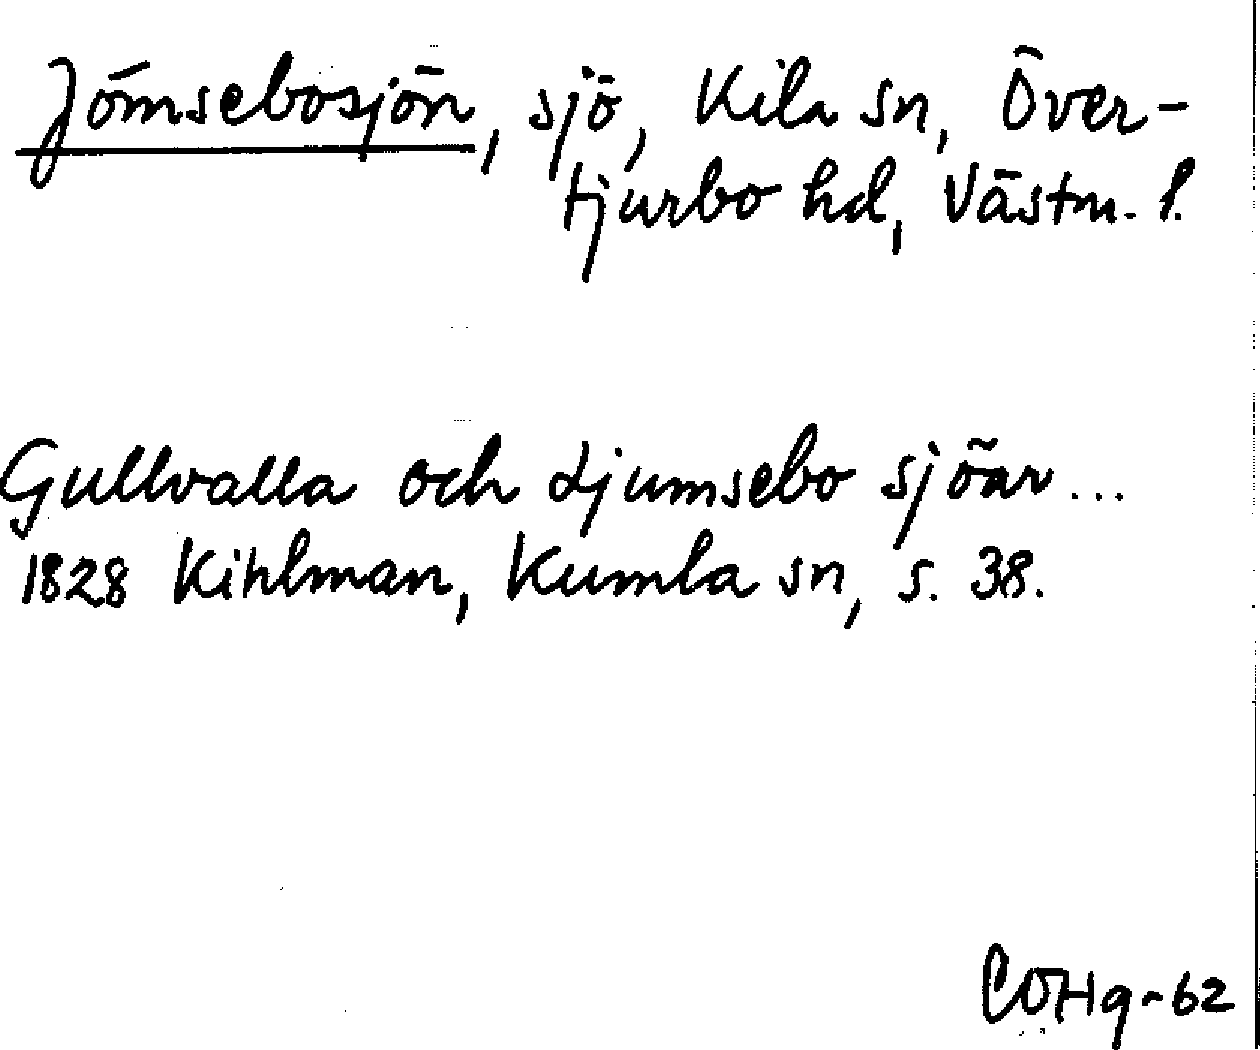 Jömsebosjön, sjö, Kila sn, Över-
tjurbo hd, Västm. l.
Gullvalla och djumsebo sjöar...
1828 Kihlman, Kumla sn, s. 38.
COHg-62